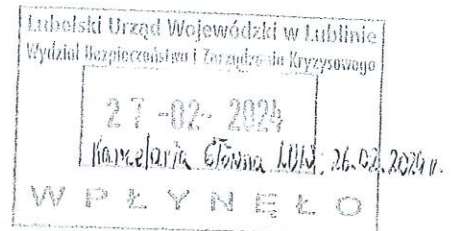 Lubelski Urząd Wojewódzki w Lublinie
Wydział Bezpieczeństwa i Zarządzania Kryzysowego
27 -02- 2024
Kancelaria Główna LUW, 26.02.2024 r.
WPŁYNĘŁO